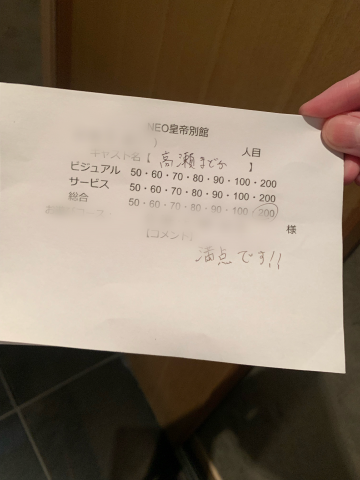 NEO皇帝別館
） 人目
キャスト名【 高瀬まどか 】
ビジュアル 50・60・70・80・90・100・200
サービス 50・60・70・80・90・100・200
総合 50・60・70・80・90・100・200
様
【コメント】
満点です!!